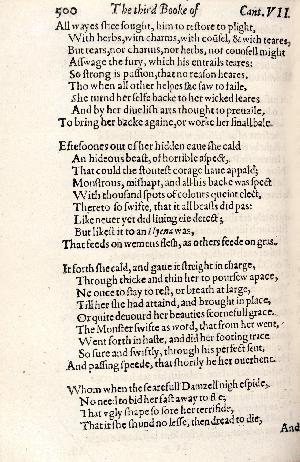 500 The third Booke of Cant. VII.
All wayes shee sought, him to restore to plight,
With herbs, with charms, with coūsel, & with teares,
But tears, nor charms, nor herbs, nor counsell might
Asswage the fury, which his entrails teares:
So strong is passion, that no reason heares.
Tho when all other helpes she saw to faile,
She turnd her selfe backe to her wicked leares
And by her diuelish arts thought to preuaile,
To bring her backe againe, or worke her finall bale.
Eftesoones out of her hidden caue she cald
An hideous beast, of horrible aspect,
That could the stoutest corage haue appald;
Monstrous, mishapt, and all his backe was spect
With thousand spots of colours queint elect,
Thereto so swifte, that it all beasts did pas:
Like neuer yet did liuing eie detect;
But likest it to an Hyena was,
That feeds on wemens flesh, as others feede on gras.
It forth she cald, and gaue it streight in charge,
Through thicke and thin her to poursew apace,
Ne once to stay to rest, or breath at large,
Till her she had attaind, and brought in place,
Or quite deuourd her beauties scornefull grace.
The Monster swifte as word, that from her went,
Went forth in haste, and did her footing trace
So sure and swiftly, through his perfect sent,
And passing speede, that shortly he her ouerhent.
Whom when the fearefull Damzell nigh espide,
No need to bid her fast away to flie;
That vgly shape so sore her terrifide,
That it she shund no lesse, then dread to die,
And